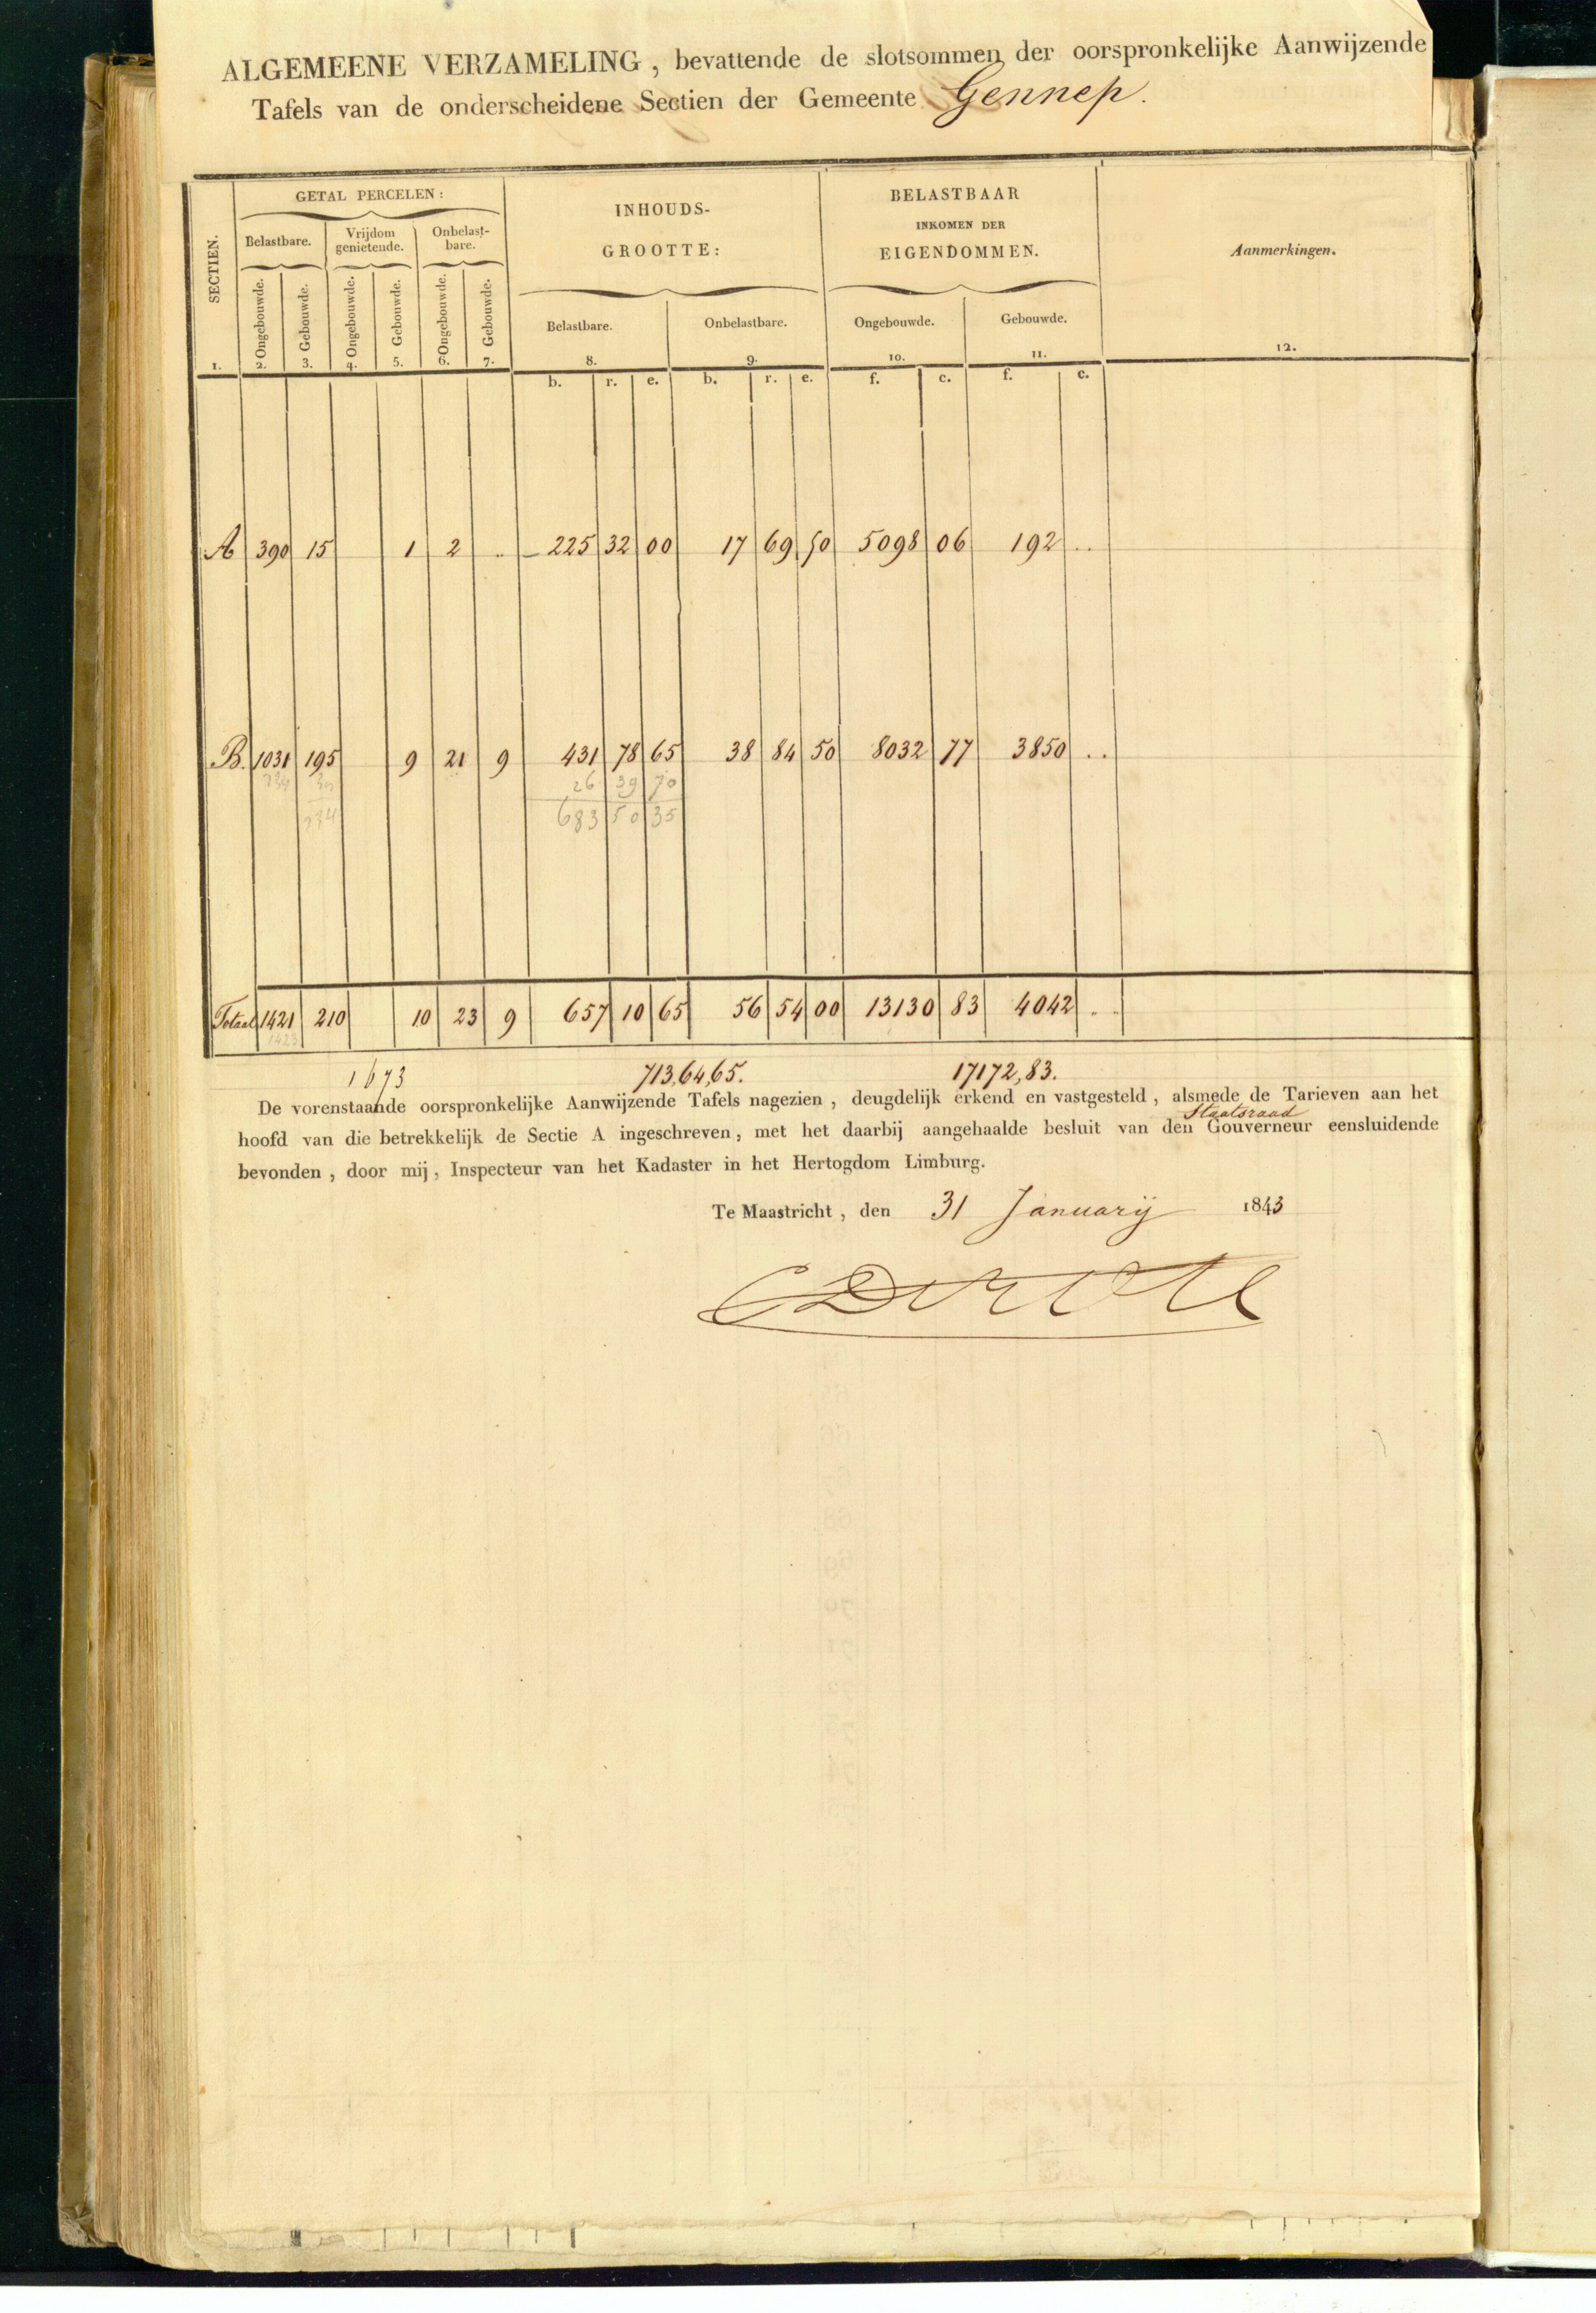 ALGEMEENE VERZAMELING, bevattende de slotsommen der oorspronkelijke Aanwijzende
Tafels van de onderscheidene Sectien der Gemeente Gennep.
SECTIEN.
GETAL PERCELEN:
INHOUDS-
GROOTTE:
BELASTBAAR
INKOMEN DER
EIGENDOMMEN.
Aanmerkingen.
Belastbare. Vrijdom genietende. Onbelast-bare.
Ongebouwde. Gebouwde. Ongebouwde. Gebouwde. Ongebouwde. Gebouwde.
Belastbare. Onbelastbare. Ongebouwde. Gebouwde.
1. 2. 3. 4. 5. 6. 7. 8. 9. 10. 11. 12.
b. r. e. b. r. e. f. c. f. c.
A 390 15 1 2 .. 225 32 00 17 69 50 5098 06 192 ..
B. 1031 195 9 21 9 431 78 65 38 84 50 8032 77 3850 ..
26 39 70
683 50 35
Totaal 1421 210 10 23 9 657 10 65 56 54 00 13130 83 4042 ..
1423
1673 713,64,65. 17172,83.
De vorenstaande oorspronkelijke Aanwijzende Tafels nagezien, deugdelijk erkend en vastgesteld, alsmede de Tarieven aan het
Staatsraad
hoofd van die betrekkelijk de Sectie A ingeschreven, met het daarbij aangehaalde besluit van den Gouverneur eensluidende
bevonden, door mij, Inspecteur van het Kadaster in het Hertogdom Limburg.
Te Maastricht, den 31 Januarij 1843